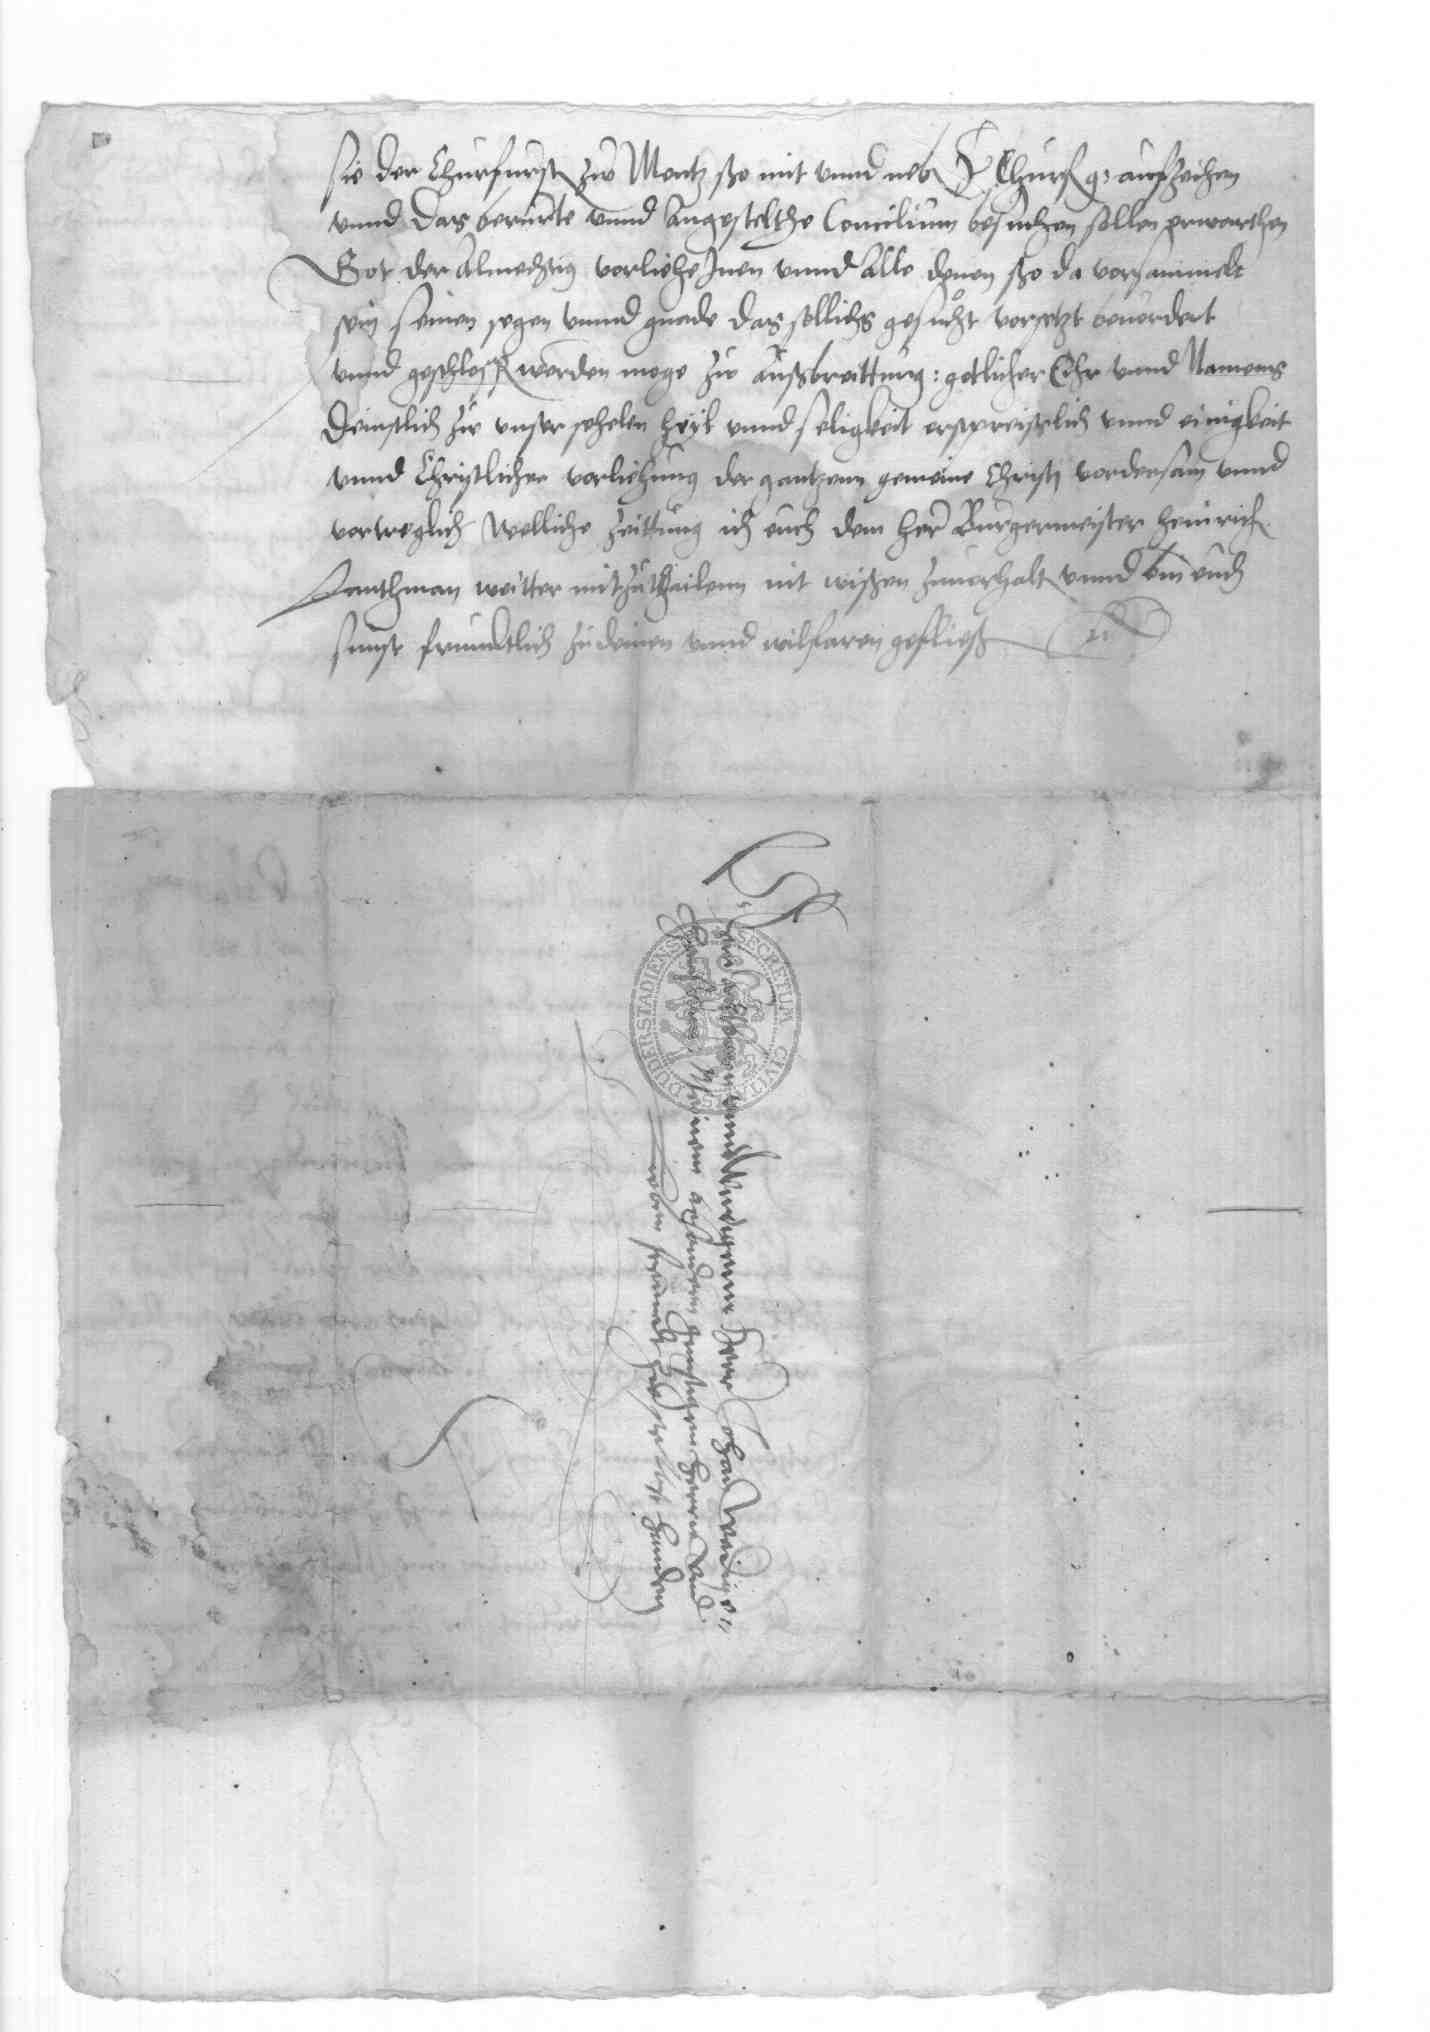 sie der Churfurst zu Mentz sso mit vnnd neb S Churf g: aufzeichen
vnnd das berurte vnnd Angestelthe Concilium besuchen sollen erwarthen
Got der Almechtig vorliehe Inen vnnd Alle denen sso da vorsammelt
sein seinen segen vnnd gnade das sollichs gesucht vorsetzt beuordert
vnnd geschloss werden moge zu Aussbreittung: gotlicher Ehr vnnd Namens
Deinstlich zu vnser sehelen heyl vnnd seligkeit erspreisslich vnnd einigkeit
vnnd Christlicher vorliehung der gantzenn gemeine Christi vordersam vnnd
vortreglich Welliche Zeittung ich euch dem her Burgermeister Heinrich
weitter mitzuthailenn nit wissen zuuorhalt vnnd bin euch
sunst freundtlich zu deinen vnnd wilfaren gefliess
SECRETUM CIVITA DUDERSTADIENS
vnnd Herr Johan
Meinem besondern gunstigen Herrn vnd
freundt zu handen